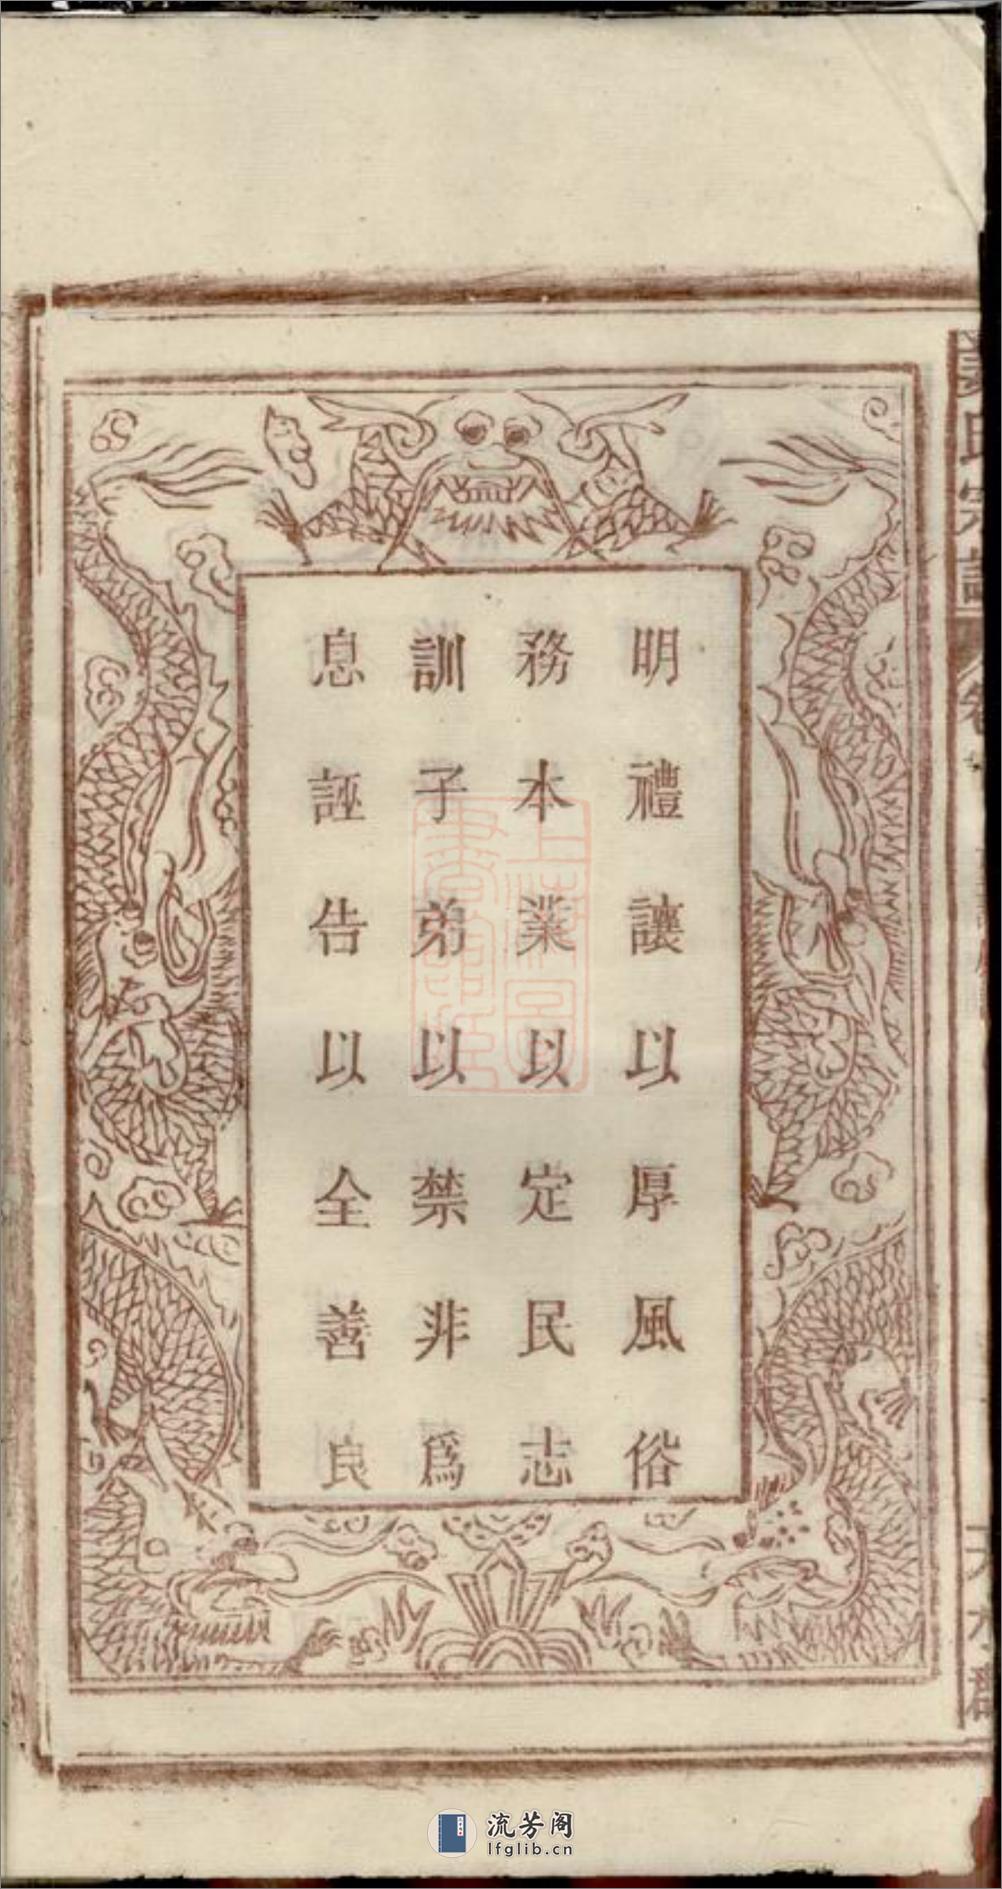 明禮讓以厚風俗
務本業以定民志
訓子弟以禁非爲
息誣告以全善良
氏宗譜
卷
天水郡
上海圖
書館藏
流芳阁
lfglib.cn